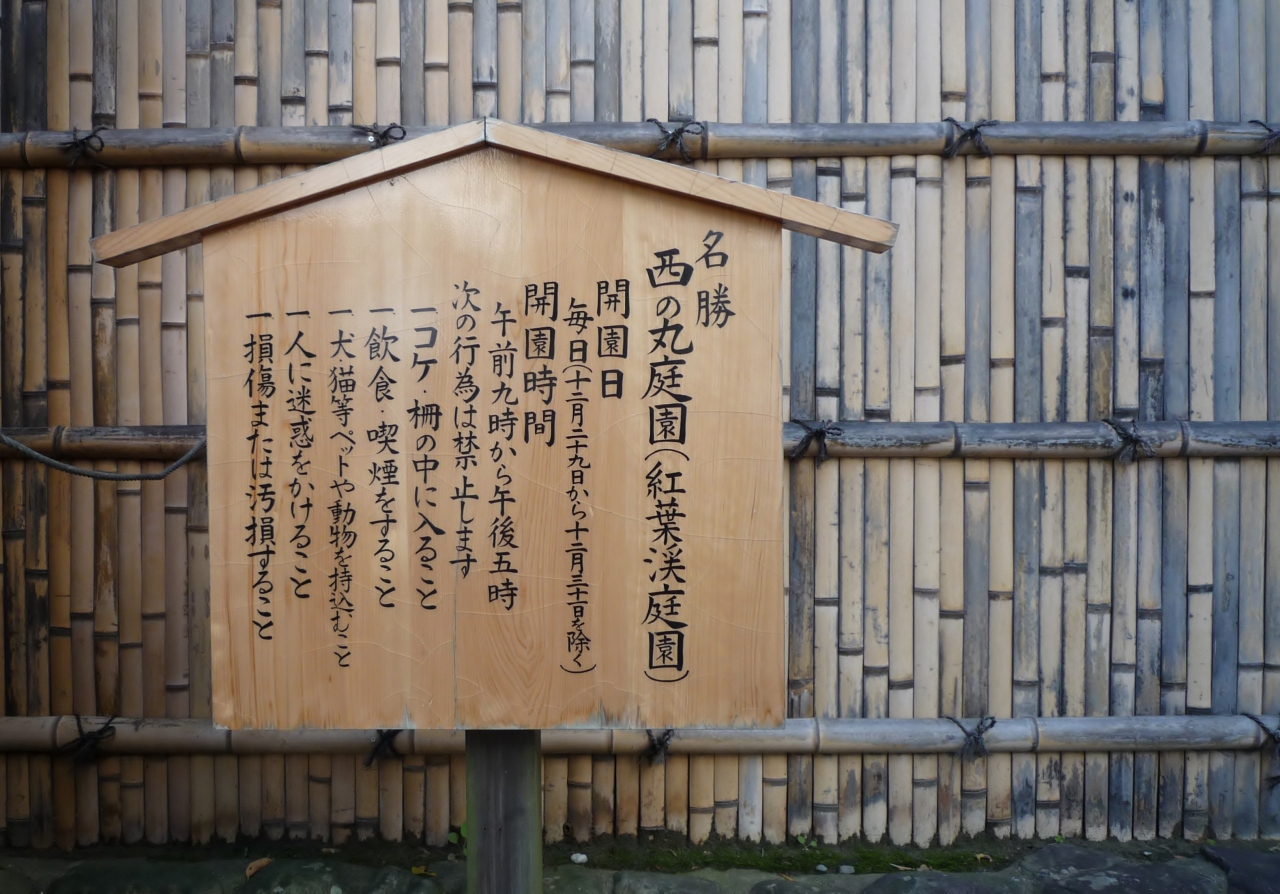 名勝
西の丸庭園(紅葉渓庭園)
開園日
毎日(十二月二十九日から十二月三十一日を除く)
開園時間
午前九時から午後五時
次の行為は禁止します
一コケ・柵の中に入ること
一飲食・喫煙をすること
一犬猫等ペットや動物を持込むこと
一人に迷惑をかけること
一損傷または汚損すること